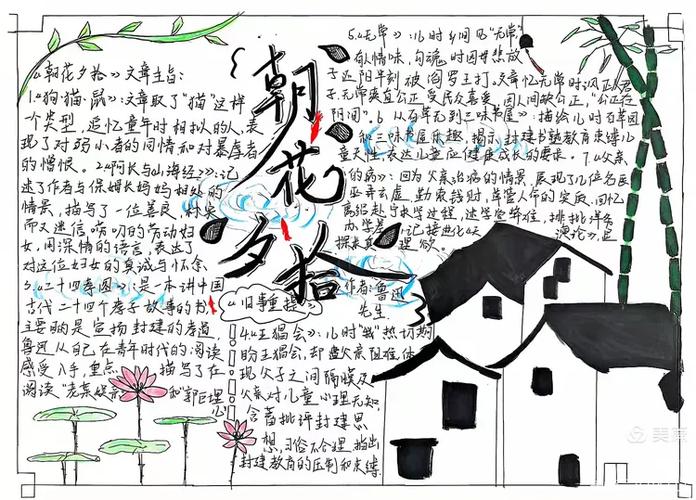 《朝花夕拾》文章主旨:
1.《狗·猫·鼠》:文章取了"猫"这样
一个类型,追忆童年时相拟的人,表
现了对弱小者的同情和对暴虐者
的憎恨。2.《阿长与山海经》:记
述了作者与保姆长妈妈相处的
情景,描写了一位善良,朴实
而又迷信,唠叨的劳动妇
女,用深情的语言,表达了
对这位妇女的真诚与怀念
3.《二十四孝图》:是一本讲中国
古代二十四个孝子故事的书
主要的是宣扬封建的孝道,
鲁迅从自己在青年时代的阅读
感受入手,重点 描写了在
阅读"老莱娱亲 和"郭巨埋
朝花夕拾
《旧事重提》
作者:鲁迅
先生
4.《五猖会》:儿时"我"热切期
盼五猖会,却遭父亲阻难,体
现父子之间隔膜及
父亲对儿童心理无知,
含蓄批评封建思
想,习俗不合理,指出
封建教育的压制和束缚.
5.《无常》:儿时乡间见"无常"
有人情味,勾魂时因悲放
子还阳半刻 被阎罗王打.文章忆无常时讽正人君
子,无常爽直公正受民众喜爱,因人间缺公正,"公正在
阴间".6.《从百草无到三味书屋》:描绘儿时百草园
和三味书屋乐趣,揭示封建书塾教育束缚儿
童天性,表达儿童应健康成长的要求。7.《父亲
的病》:因为父亲治病的情景,展现了几位名医
巫弄玄虚,勤索钱财,草菅人命的实质,回忆
美篇